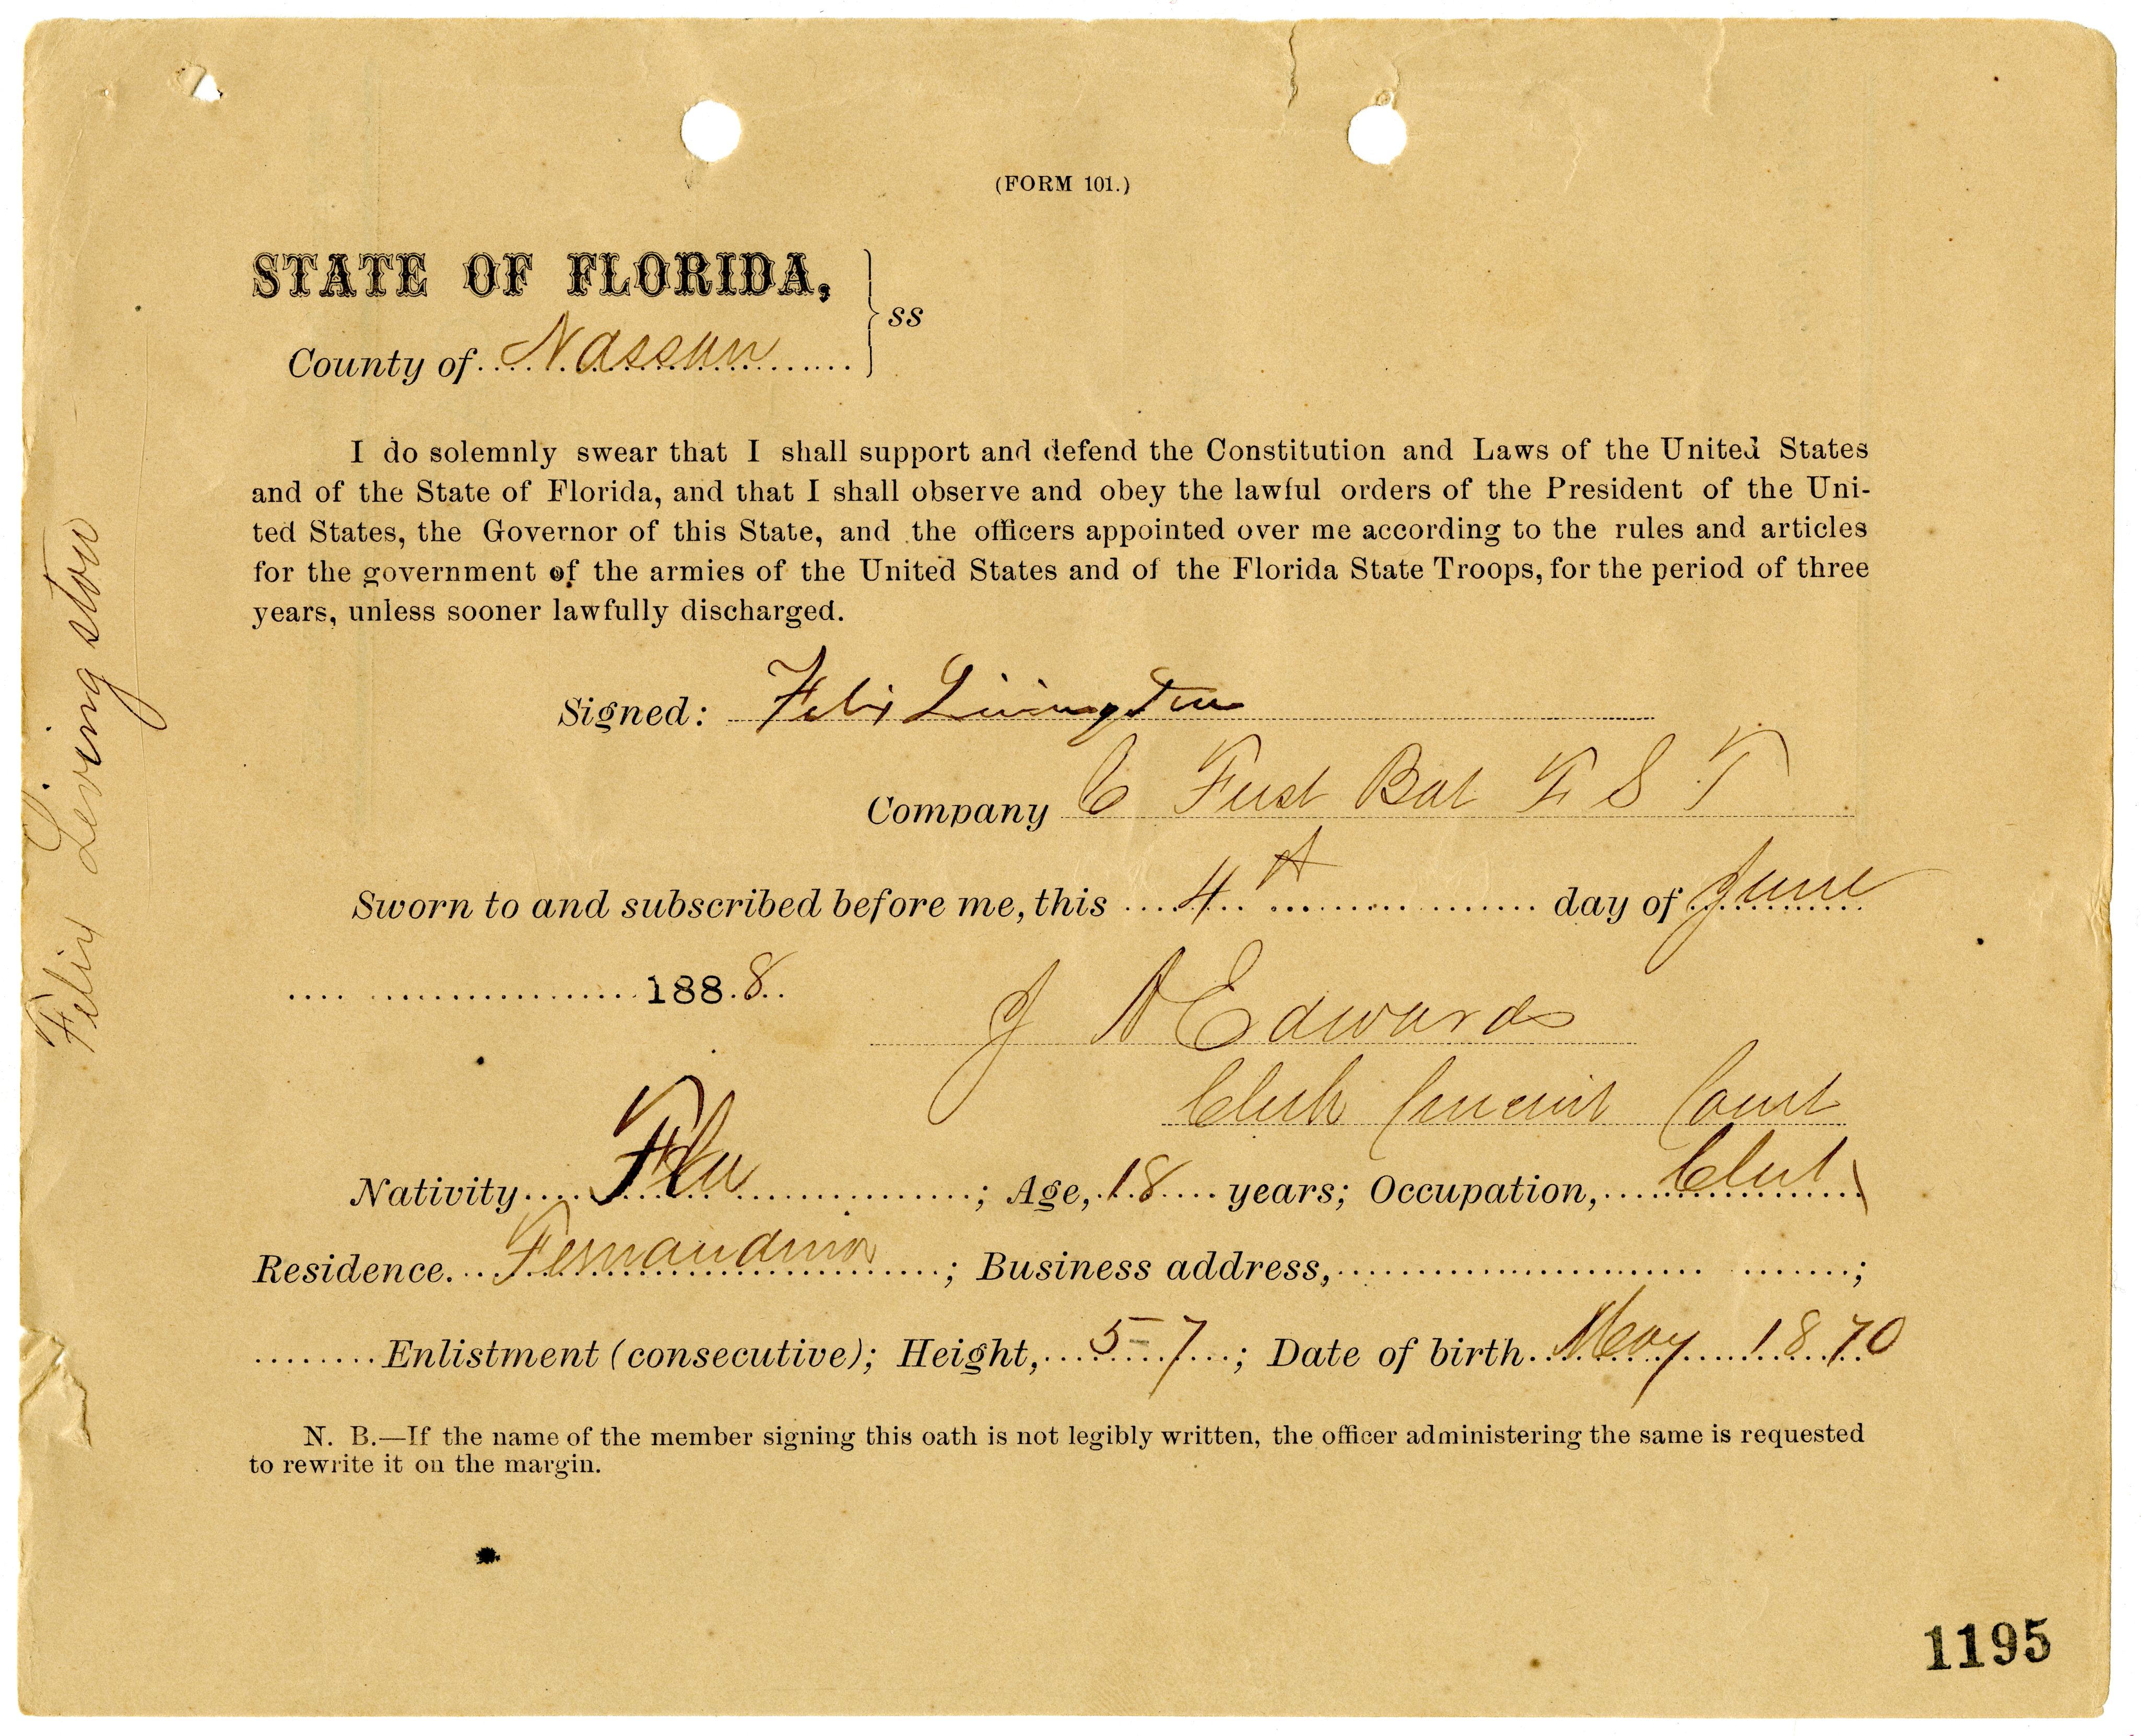 (FORM 101.)
STATE OF FLORIDA,
ss
County of Nassau
I do solemnly swear that I shall support and defend the Constitution and Laws of the United States
and of the State of Florida, and that I shall observe and obey the lawful orders of the President of the Uni-
ted States, the Governor of this State, and the officers appointed over me according to the rules and articles
for the government of the armies of the United States and of the Florida State Troops, for the period of three
years, unless sooner lawfully discharged.
Signed: Felix Livingston
Company C First Bat F S T
Sworn to and subscribed before me, this 4th day of June
1888
J Edwards
Clerk Circuit Court
Nativity Fla ; Age, 18 years; Occupation, Clerk
Residence Fernandina ; Business address, ;
Enlistment (consecutive); Height, 5-7 ; Date of birth May 1870
N. B.—If the name of the member signing this oath is not legibly written, the officer administering the same is requested
to rewrite it on the margin.
Felix Livingston
1195